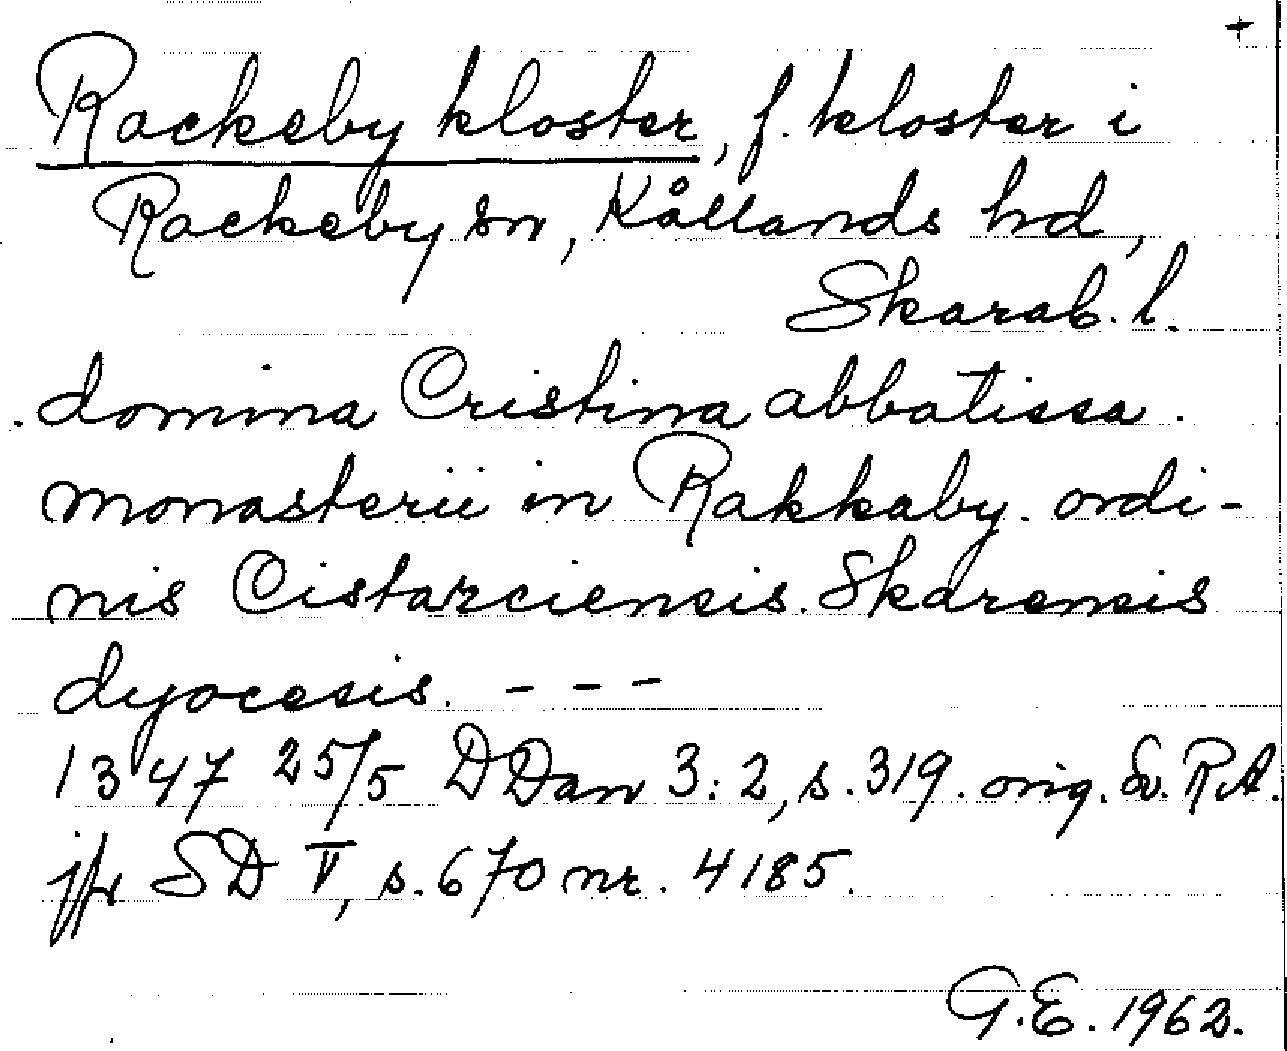 +
Rackeby kloster, f. kloster i
Rackeby sn, Kållands hd,
Skarab. l.
domina Cristina abbatissa.
monasterii in Rakkaby. ordi-
nis Cistarciensis. Skarensis
dyocesis. - - -
1347 25/5 DDan 3:2, s. 319. orig. Sv. R.A.
jfr SD V, s. 670 nr. 4185.
G.E. 1962.